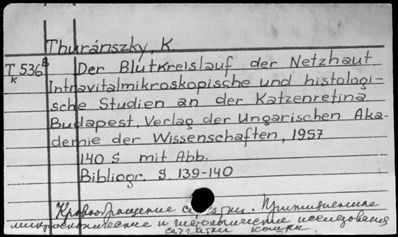 Thuránszky, K.
T 536 B Der Blutkreislauf der Netzhaut
K Intravitalmikroskopische und histologi-
sche Studien an der Katzenretina
Budapest, Verlag der Ungarischen Aka-
demie der Wissenschaften, 1957
140 S mit Abb.
Bibliogr. S. 139-140
Кровообращение сетчатки. Прижизненные
микроскопические и гистологические исследования
сетчатки кошки.